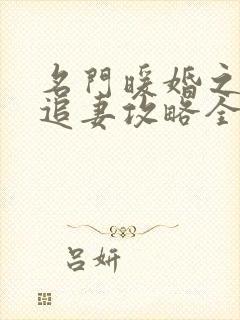 名門暖婚之
追妻攻略全
吕妍